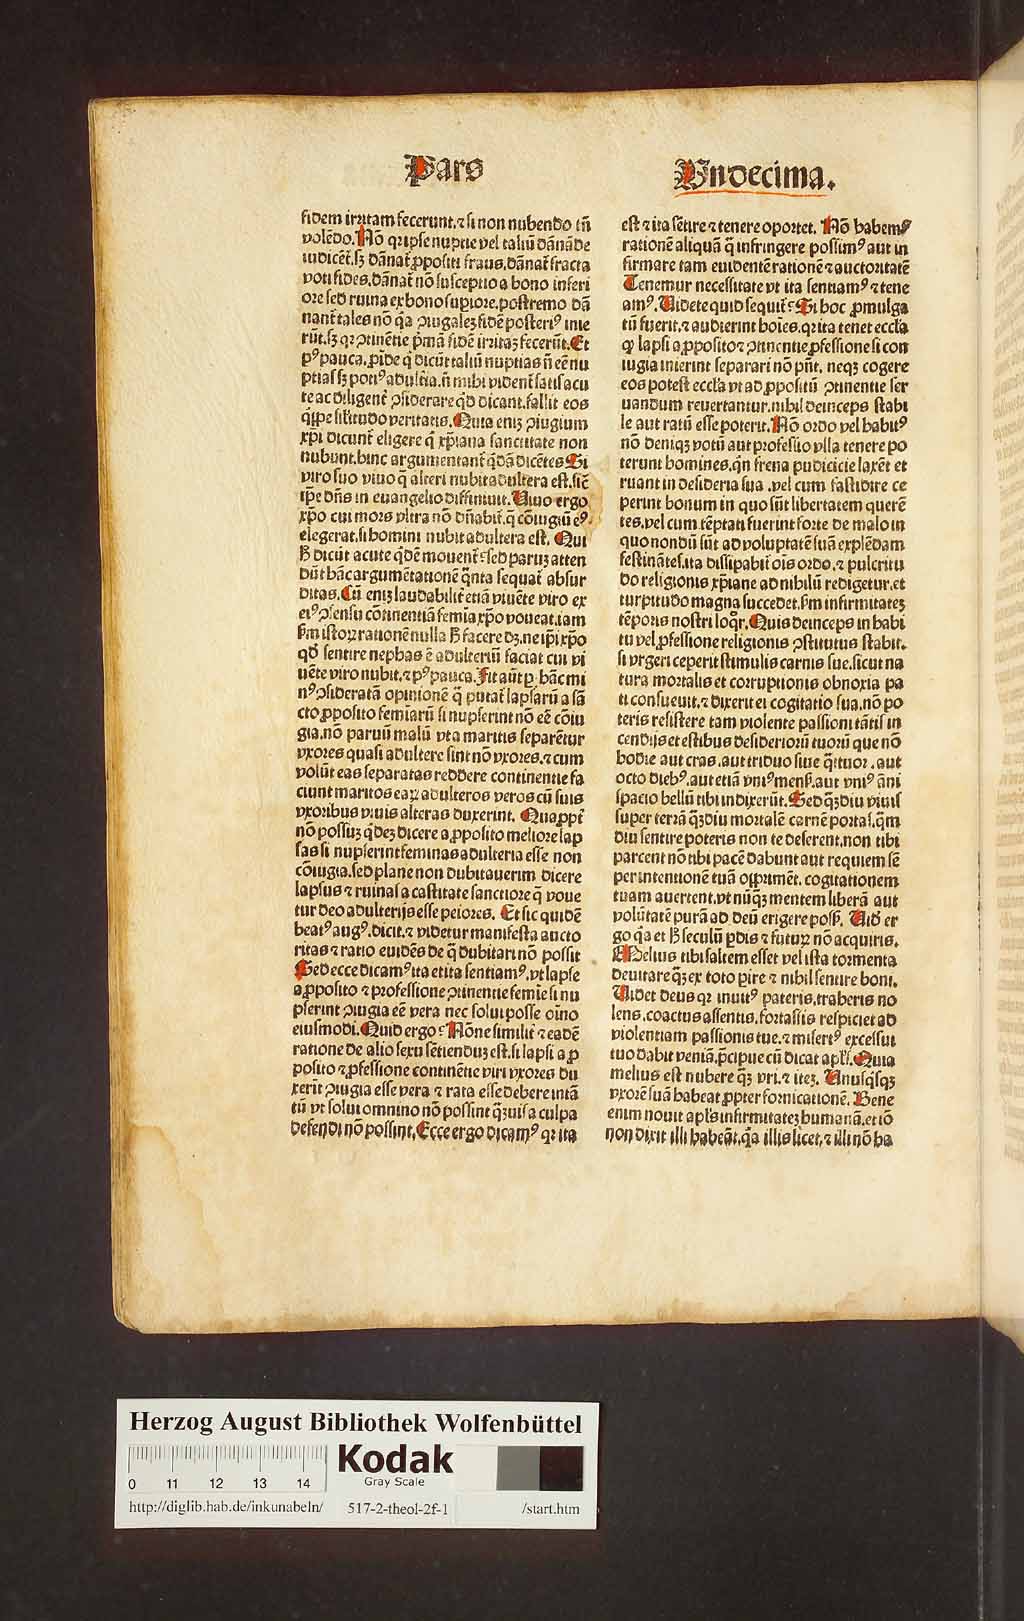 Pars
Undecima.
fidem irritam fecerunt. ⁊ si non nubendo tñ
volẽdo. Nõ qꝛ ipse nuptie vel taliũ dãnãde
iudicẽt̃. sꝫ dãnat̃ ꝓpositi fraus. dãnat̃ fracta
voti fides. dãnat̃ nõ susceptio a bono inferi
ore sed ruina ex bono supiore. postremo dã
nant̃ tales nõ q̃a ꝯiugaleꝫ fidẽ posteriꝰ inie
rũt. sꝫ qꝛ ꝯtinentie p̃mã fidẽ irritaꝫ fecerũt. Et
pꝰ pauca. ꝓide q̃ dicũt taliũ nuptias ñ eẽ nu
ptias sꝫ potiꝰ adulťia. ñ mihi vident̃ satis acu
te ac diligent̃ ꝯsiderare qď dicant. fallit eos
q̃ppe silitudo veritatis. Quia eniꝫ ꝯiugium
xp̃i dicunt̃ eligere q̃ xp̃iana sanctitate non
nubunt. hinc argumentant̃ q̃dã dicẽtes Si
viro suo viuo q̃ alteri nubit adultera est. sic̃
ip̃e dñs in euangelio diffiniuit. Viuo ergo
xp̃o cui mors vltra nõ dñabit̃. q̃ cõiugiũ eꝰ
elegerat. si homini nubit adultera est. Qui
ħ dicũt acute q̃dẽ mouent̃. sed paruꝫ atten
dũt hãc argumẽtationẽ q̃nta sequat̃ absur
ditas. Cũ eniꝫ laudabilit̃ etiã viuẽte viro ex
eiꝰ ꝯsensu cõtinentiã femĩa xp̃o voueat. iam
ẜm istoꝝ rationẽ nulla ħ facere dꝫ. ne ip̃i xp̃o
qď sentire nephas ẽ adulteriũ faciat cui vi
uẽte viro nubit. ⁊ pꝰ pauca. Fit aũt ꝑ hãc mi
nꝰ ꝯsideratã opinionẽ q̃ putat̃ lapsarũ a sã
cto ꝓposito femĩarũ si nupserint nõ eẽ cõiu
gia. nõ paruũ malũ vt a maritis separẽtur
vxores quasi adultere sint nõ vxores. ⁊ cum
volũt eas separatas reddere continentie fa
ciunt maritos eaꝝ adulteros veros cũ suis
vxoribus viuis alteras duxerint. Quappt̃
nõ possuꝫ q̃deꝫ dicere a ꝓposito meliore lap
sas si nupserint feminas adulteria esse non
cõiugia. sed plane non dubitauerim dicere
lapsus ⁊ ruinas a castitate sanctiore q̃ voue
tur deo adulterijs esse peiores. Et sic quidẽ
beatꝰ augꝰ. dicit. ⁊ videtur manifesta aucto
ritas ⁊ ratio euidẽs de q̃ dubitari nõ possit
Sed ecce dicamꝰ ita et ita sentiamꝰ. vt lapse
a ꝓposito ⁊ professione ꝯtinentie femĩe si nu
pserint ꝯiugia eẽ vera nec solui posse oĩno
eiusmodi. Quid ergo? Nõne similit̃ ⁊ eadẽ
ratione de alio sexu sẽtienduꝫ est. si lapsi a ꝓ
posito ⁊ ꝓfessione continẽtie viri vxores du
xerĩt ꝯiugia esse vera ⁊ rata esse debere intã
tũ vt solui omnino nõ possint q̃uis a culpa
defendi nõ possint. Ecce ergo dicamꝰ qꝛ ita
est ⁊ ita sẽtire ⁊ tenere oportet. Nõ habemꝰ
rationẽ aliquã q̃ infringere possimꝰ aut in
firmare tam euidentẽ rationẽ ⁊ auctoritatẽ
Tenemur necessitate vt ita sentiamꝰ ⁊ tene
amꝰ. Videte quid sequit̃? Si hoc ꝓmulga
tũ fuerit. ⁊ audierint hoĩes. qꝛ ita tenet eccľa
ꝙ lapsi a ꝓposito ⁊ ꝯtinentie ꝓfessione si con
iugia inierint separari nõ pñt. neqꝫ cogere
eos potest eccľa vt ad ꝓpositũ ꝯtinentie ser
uandum reuertantur. nihil deinceps stabi
le aut ratũ esse poterit. Nõ ordo vel habitꝰ
nõ deniqꝫ votũ aut professio vlla tenere po
terunt homines. qñ frena pudicicie laxẽt et
ruant in desideria sua. vel cum fastidire ce
perint bonum in quo sũt libertatem querẽ
tes. vel cum tẽptati fuerint forte de malo in
quo nondũ sũt ad voluptatẽ suã explẽdam
festinãtes. ita dissipabit̃ oĩs ordo. ⁊ pulcritu
do religionis xp̃iane ad nihilũ redigetur. et
turpitudo magna succedet. ẜm infirmitateꝫ
tẽporis nostri loq̃r. Quis deinceps in habi
tu vel ꝓfessione religionis ꝯstitutus stabit.
si vrgeri ceperit stimulis carnis sue. sicut na
tura mortalis et corruptionis obnoxia pa
ti consueuit. ⁊ dixerit ei cogitatio sua. nõ po
teris resistere tam violente passioni tãtis in
cendijs et estibus desideriorũ tuorũ que nõ
hodie aut cras. aut triduo siue q̃tuor. aut
octo diebꝰ. aut etiã vniꝰ mens̃. aut vniꝰ ãni
spacio bellũ tibi indixerũt. Sed q̃ꝫdiu viuis
super terã q̃ꝫdiu mortalẽ carnẽ portas. q̃m
diu sentire poteris non te deserent. non tibi
parcent nõ tibi pacẽ dabunt aut requiem sẽ
per intentionẽ tuã oppriment. cogitationem
tuam auertent. vt nũq̃ꝫ mentem liberã aut
volũtatẽ purã ad deũ erigere poss̃. Vid̃ er
go q̃a et ħ seculũ ꝑdis ⁊ futuꝝ nõ acquiris.
Melius tibi saltem esset vel ista tormenta
deuitare q̃ꝫ ex toto ꝑire ⁊ nihil sentire boni.
Videt deus qꝛ inuitꝰ pateris. traheris no
lens. coactus assentis. fortassis respiciet ad
violentiam passionis tue. ⁊ misertꝰ excessui
tuo dabit veniã. p̃cipue cũ dicat apľs. Quia
melius est nubere q̃ꝫ vri. ⁊ iteꝫ. Vnusq̃sqꝫ
vxorẽ suã habeat ꝓpter fornicationẽ. Bene
enim nouit apľs infirmitateꝫ humanã. et iõ
non dixit illi habeãt. q̃a illis licet. ⁊ illi nõ ha
Herzog August Bibliothek Wolfenbüttel
0 11 12 13 14
Kodak
Gray Scale
http://diglib.hab.de/inkunabeln/ 517-2-theol-2f-1 /start.htm